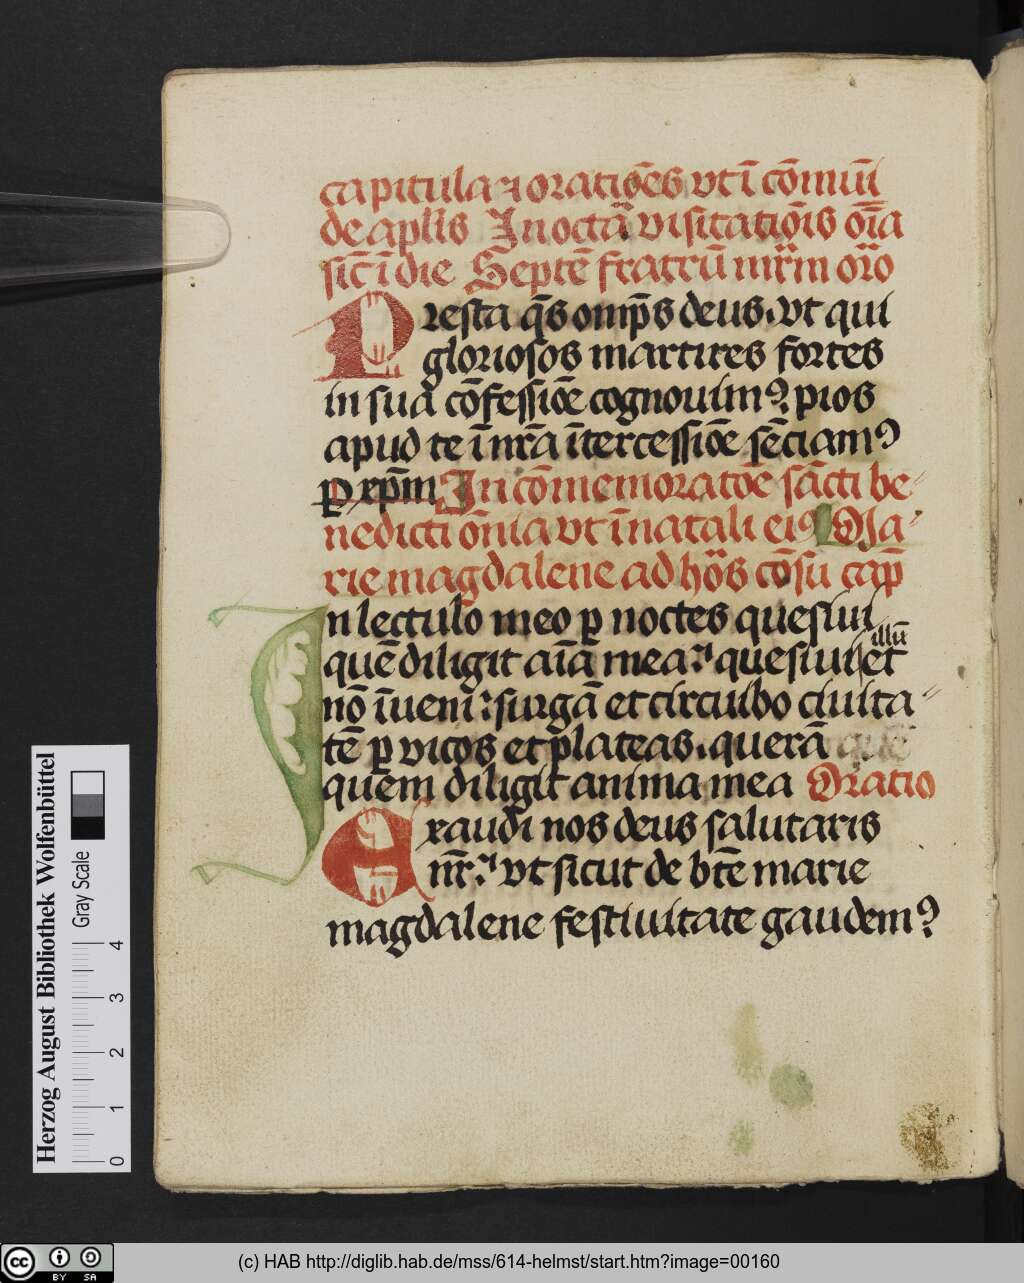 capitula ⁊ oratiōēs vt ī cōmūī
de aplīs In octā visitatiōīs oīa
sic̄ ī die Septē fratrū mr̄m or̄o
Presta q̄s omp̄s deus. vt qui
gloriosos martires fortes
in sua cōfessiōe cognouimꝰ. pios
apud te ī nr̄a ītercessiōe sēciamꝰ
ꝑ xp̄m In cōmemoratōe sācti be-
nedicti ōnia vt ī natali eiꝰ Ma-
rie magdalene ad hōs cōsu cap̄
In lectulo meo ꝑ noctes quesiui
quē diligit aīa mea: quesiui illū et
nō īueni: surgā et circuibo ciuita-
tē ꝑ vicos et plateas. querā quē
quem diligit anima mea Oratio
Exaudi nos deus salutaris
nr̄: vt sicut de btē marie
magdalene festiuitate gaudemꝰ
Herzog August Bibliothek Wolfenbüttel
Gray Scale
0 1 2 3 4
cc BY SA
(c) HAB http://diglib.hab.de/mss/614-helmst/start.htm?image=00160